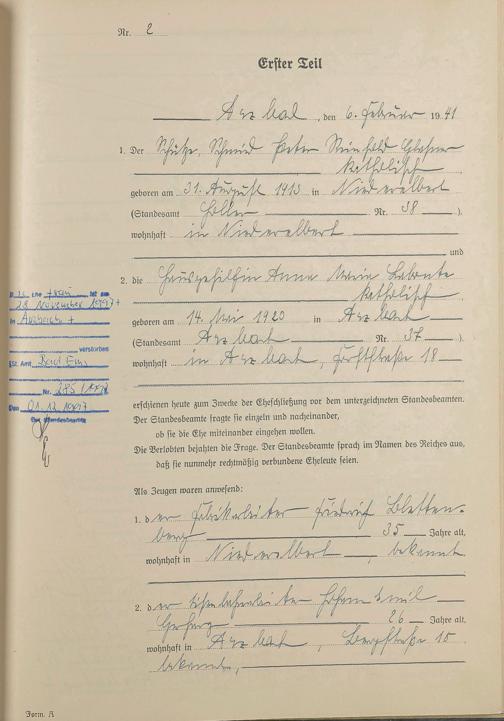 Nr. 2
Erster Teil
Arzbach, den 6. Februar 1941
1. Der Schütze, Schmied Peter Reinhold
katholisch
geboren am 31. August 1913 in Niederelbert
(Standesamt Holler Nr. 38 ).
wohnhaft in Niederelbert
und
2. die Hausgehilfin Anna Maria Labonte
katholisch
geboren am 14. Mai 1920 in Arzbach
(Standesamt Arzbach Nr. 37 ).
wohnhaft in Arzbach, 18
erschienen heute zum Zwecke der Eheschließung vor dem unterzeichneten Standesbeamten.
Der Standesbeamte fragte sie einzeln und nacheinander,
ob sie die Ehe miteinander eingehen wollen.
Die Verlobten bejahten die Frage. Der Standesbeamte sprach im Namen des Reiches aus,
daß sie nunmehr rechtmäßig verbundene Eheleute seien.
Als Zeugen waren anwesend:
1. der Fabrikarbeiter Friedrich Bletten-
berg 35 Jahre alt,
wohnhaft in Niederelbert, bekannt
2. der Johann Emil
26 Jahre alt,
wohnhaft in Arzbach, Bergstraße 10
bekannt,
Ehefrau ist am
28. November 1997
in Arzbach
verstorben
St. Amt Bad Ems
Nr. 285
Den 01.12.1997
Der Standesbeamte
Form. A